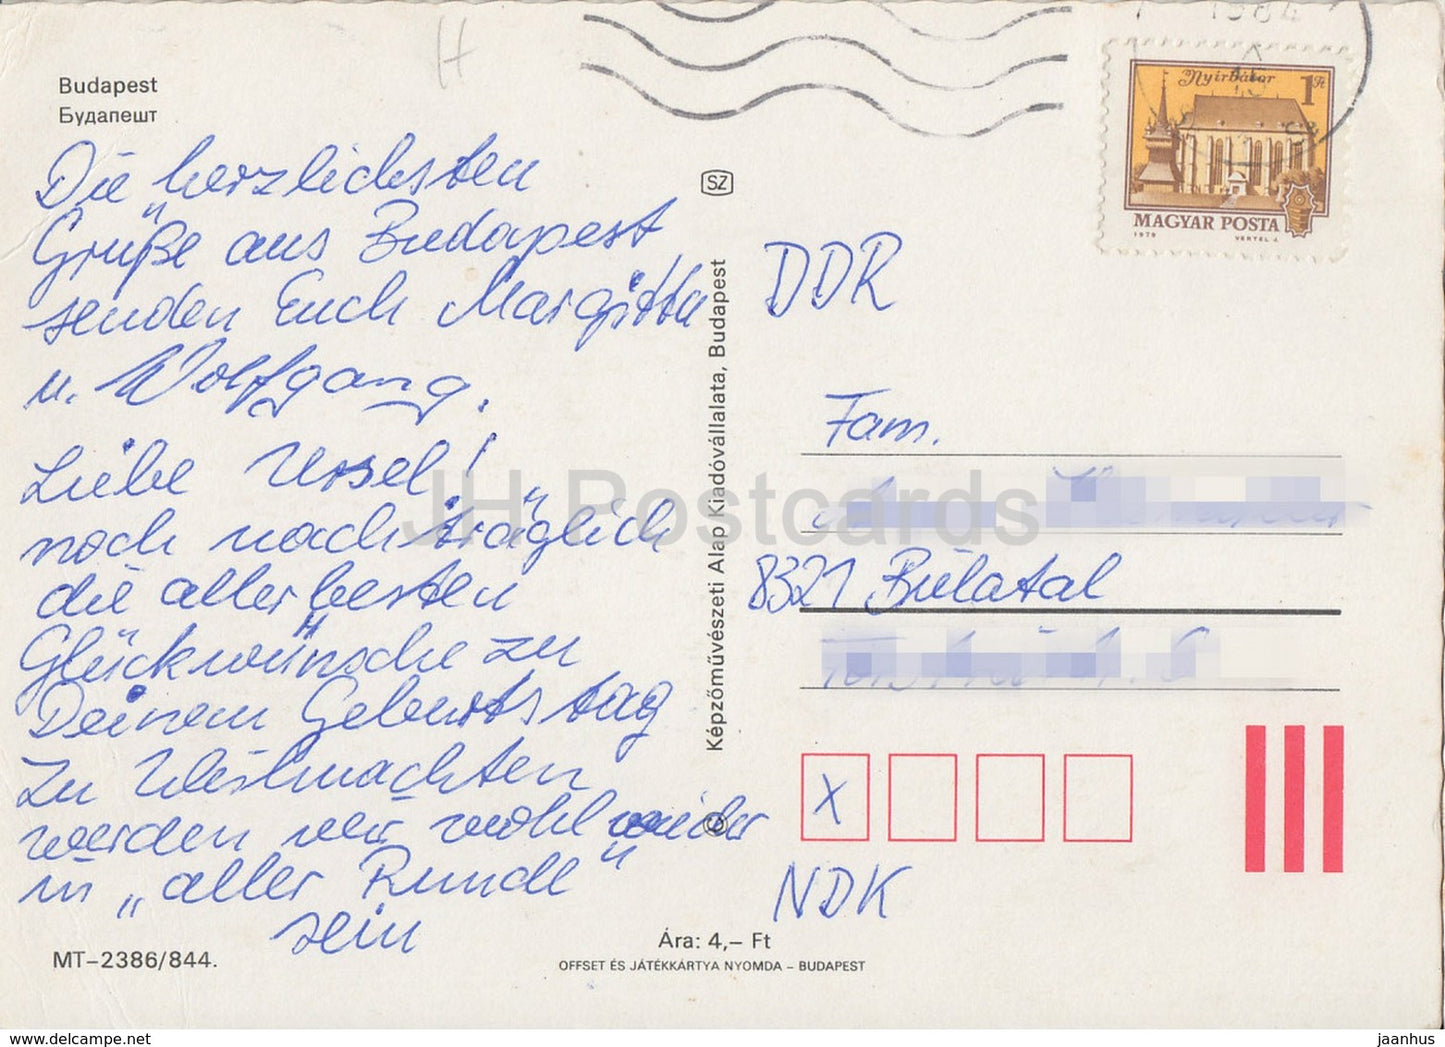 Budapest
Будапешт
Die herzlichsten
Grüße aus Budapest
senden Euch Margitta
u. Wolfgang.
Liebe Ursel!
noch nachträglich
die allerbesten
Glückwünsche zu
Deinem Geburtstag
Zu Weihnachten
werden wir wohl wieder
in „aller Runde“
sein
MT–2386/844.
SZ
Képzőművészeti Alap Kiadóvállalata, Budapest
©
Ára: 4,– Ft
OFFSET ÉS JÁTÉKKÁRTYA NYOMDA – BUDAPEST
1984
Nyírbátor
1 Ft
MAGYAR POSTA
1979
VERTEL J.
DDR
Fam.
8321 Bielatal
X
NDK
H
JH Postcards
delcampe.net
jaanhus